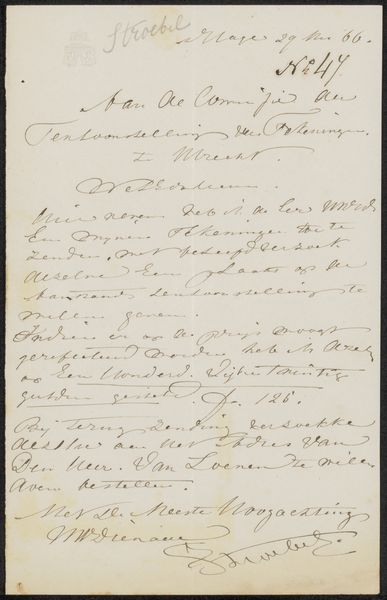 Stroebel
Hage 29 66.
No 47.
Aan de Commissie der
Tentoonstelling der Tekeningen
te Utrecht.
WelEdelen
Hier nevens heb ik de Eer UWEd
Een mijner Tekeningen toe te
zenden, met beleefd verzoek
dezelve Een plaats op de
tentoonstelling te
willen geven.
Indien er op de prijs mogt
gereflecteerd worden heb ik dezelve
op Een Honderd Vijf en twintig
gulden gesteld. f 125.
Bij terug zending verzoeke
dezelve aan het adres van
Den Heer. Van Loenen te willen
doen bestellen.
Met de Meeste Hoogachting
UWDienaar
Stroebel.